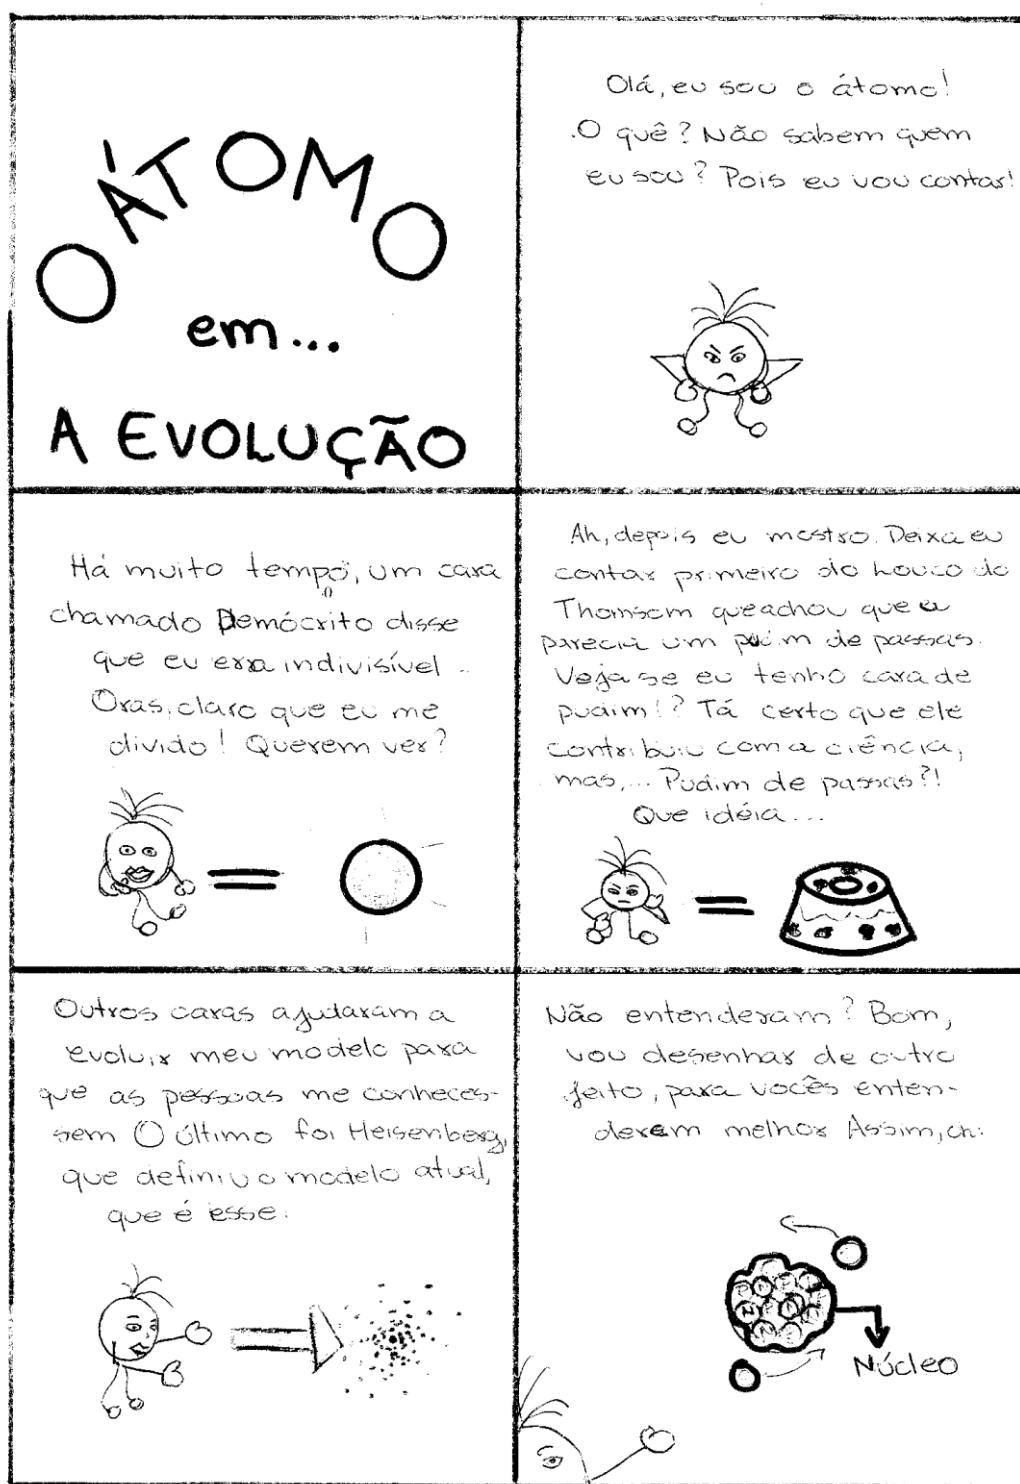 O ÁTOMO
em...
A EVOLUÇÃO
Olá, eu sou o átomo!
O quê? Não sabem quem
eu sou? Pois eu vou contar!
Há muito tempo, um cara
chamado Demócrito disse
que eu era indivisível...
Oras, claro que eu me
divido! Querem ver?
Ah, depois eu mostro. Deixa eu
contar primeiro do Louco do
Thomsom que achou que eu
parecia um pudim de passas.
Veja se eu tenho cara de
pudim!? Tá certo que ele
contribuiu com a ciência,
mas,... Pudim de passas?!
Que idéia...
Outros caras ajudaram a
evoluir meu modelo para
que as pessoas me conheces-
sem O último foi Heisenberg,
que definiu o modelo atual,
que é esse:
Não entenderam? Bom,
vou desenhar de outro
jeito, para vocês enten-
derem melhor Assim, oh:
Núcleo